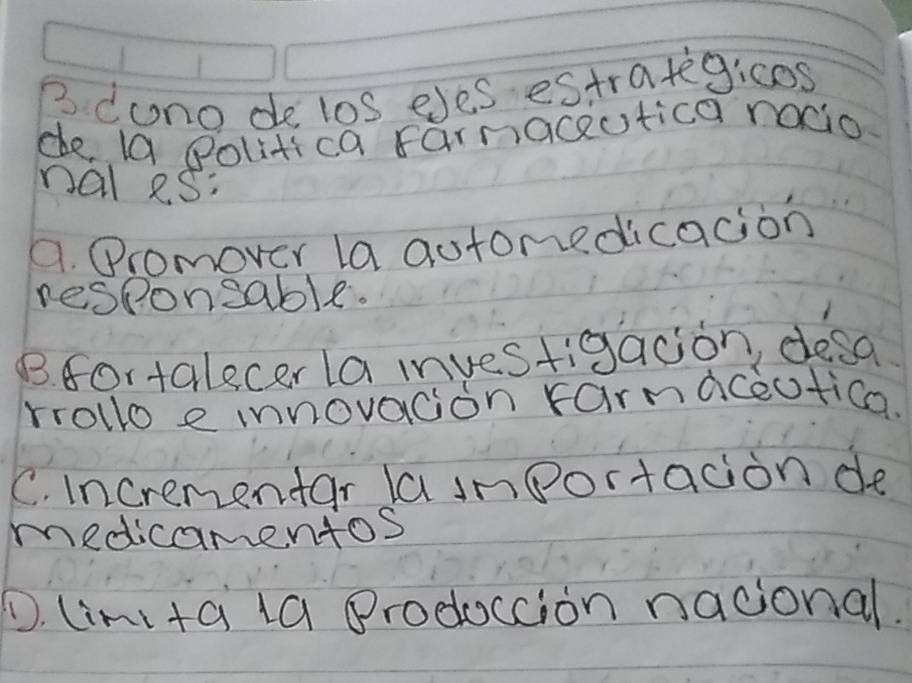 3. ¿uno de los ejes estratégicos
de la Politica Farmaceutica nacio-
nal es:
a. Promover la automedicación
responsable.
B. fortalecer la investigación, desa
rrollo e innovación Farmacéutica.
C. Incrementar la importación de
medicamentos
D. limita la Producción nacional.